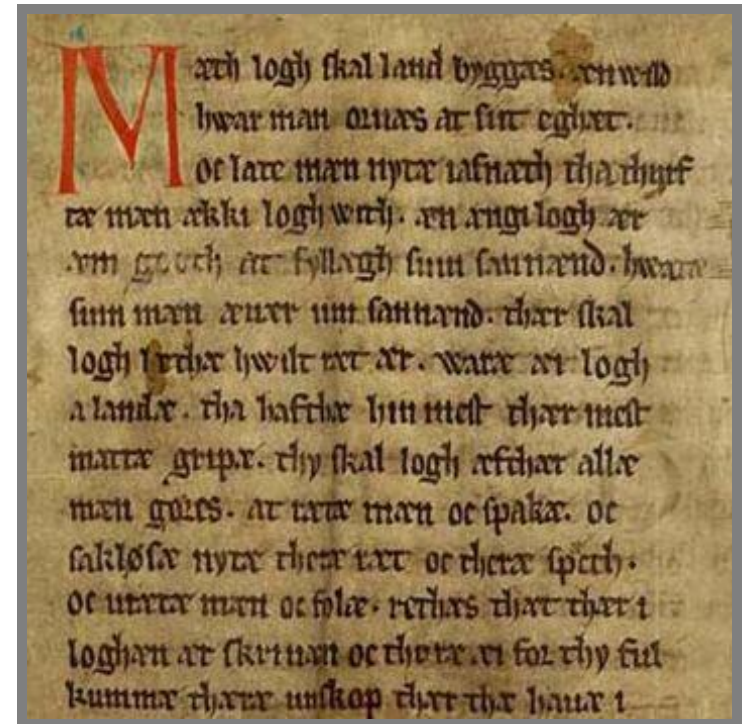 Mæth logh skal land byggæs. æn wild
hwar man oruæs at sint eghæt.
oc late mæn nytæ iafnæth tha thyrf
tæ mæn ækki logh with. æn ængi logh ær
æm gooth at fyllægh sum sannænd. hwaræ
sum mæn æuær um sannænd. thær skal
logh lethæ hwilt ræt ær. waræ æi logh
a landæ. tha hafthæ hin mest thær mest
mattæ gripæ. thy skal logh æfthær allæ
mæn gøres. at rætæ mæn oc spakæ. oc
sakløsæ nytæ theræ ræt oc theræ spech.
oc urætæ mæn oc folæ. rethæs that thær i
loghæn ær skriuan oc thoræ æi for thy ful
kummæ theræ unskop thær the hauæ i